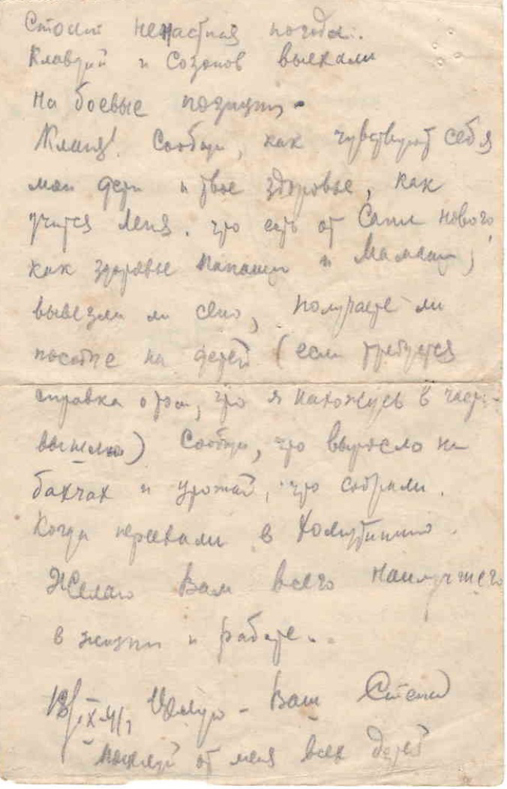 Стоит ненастная погода.
Клавдий и Созонов выехали
на боевые позиции.
Клавя! Сообщи, как чувствуют себя
мои дети и твое здоровье, как
учится Леня. что есть от Саши нового,
как здоровье папаши и Мамаши,
вывезли ли сено, получаете ли
пособие на детей (если требуется
справка о том, что я нахожусь в части
вышлю) Сообщи, что выросло на
бахчах и урожай, что собрали.
Когда переехали в
Желаю Вам всего наилучшего
в жизни и работе.
Целую - Ваш Степа
поцелуй от меня всех детей